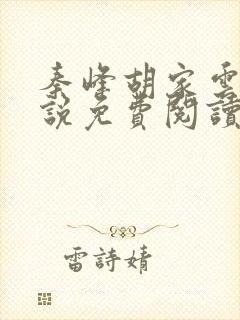 秦峰胡家雲
說免費閱讀
雷詩婧